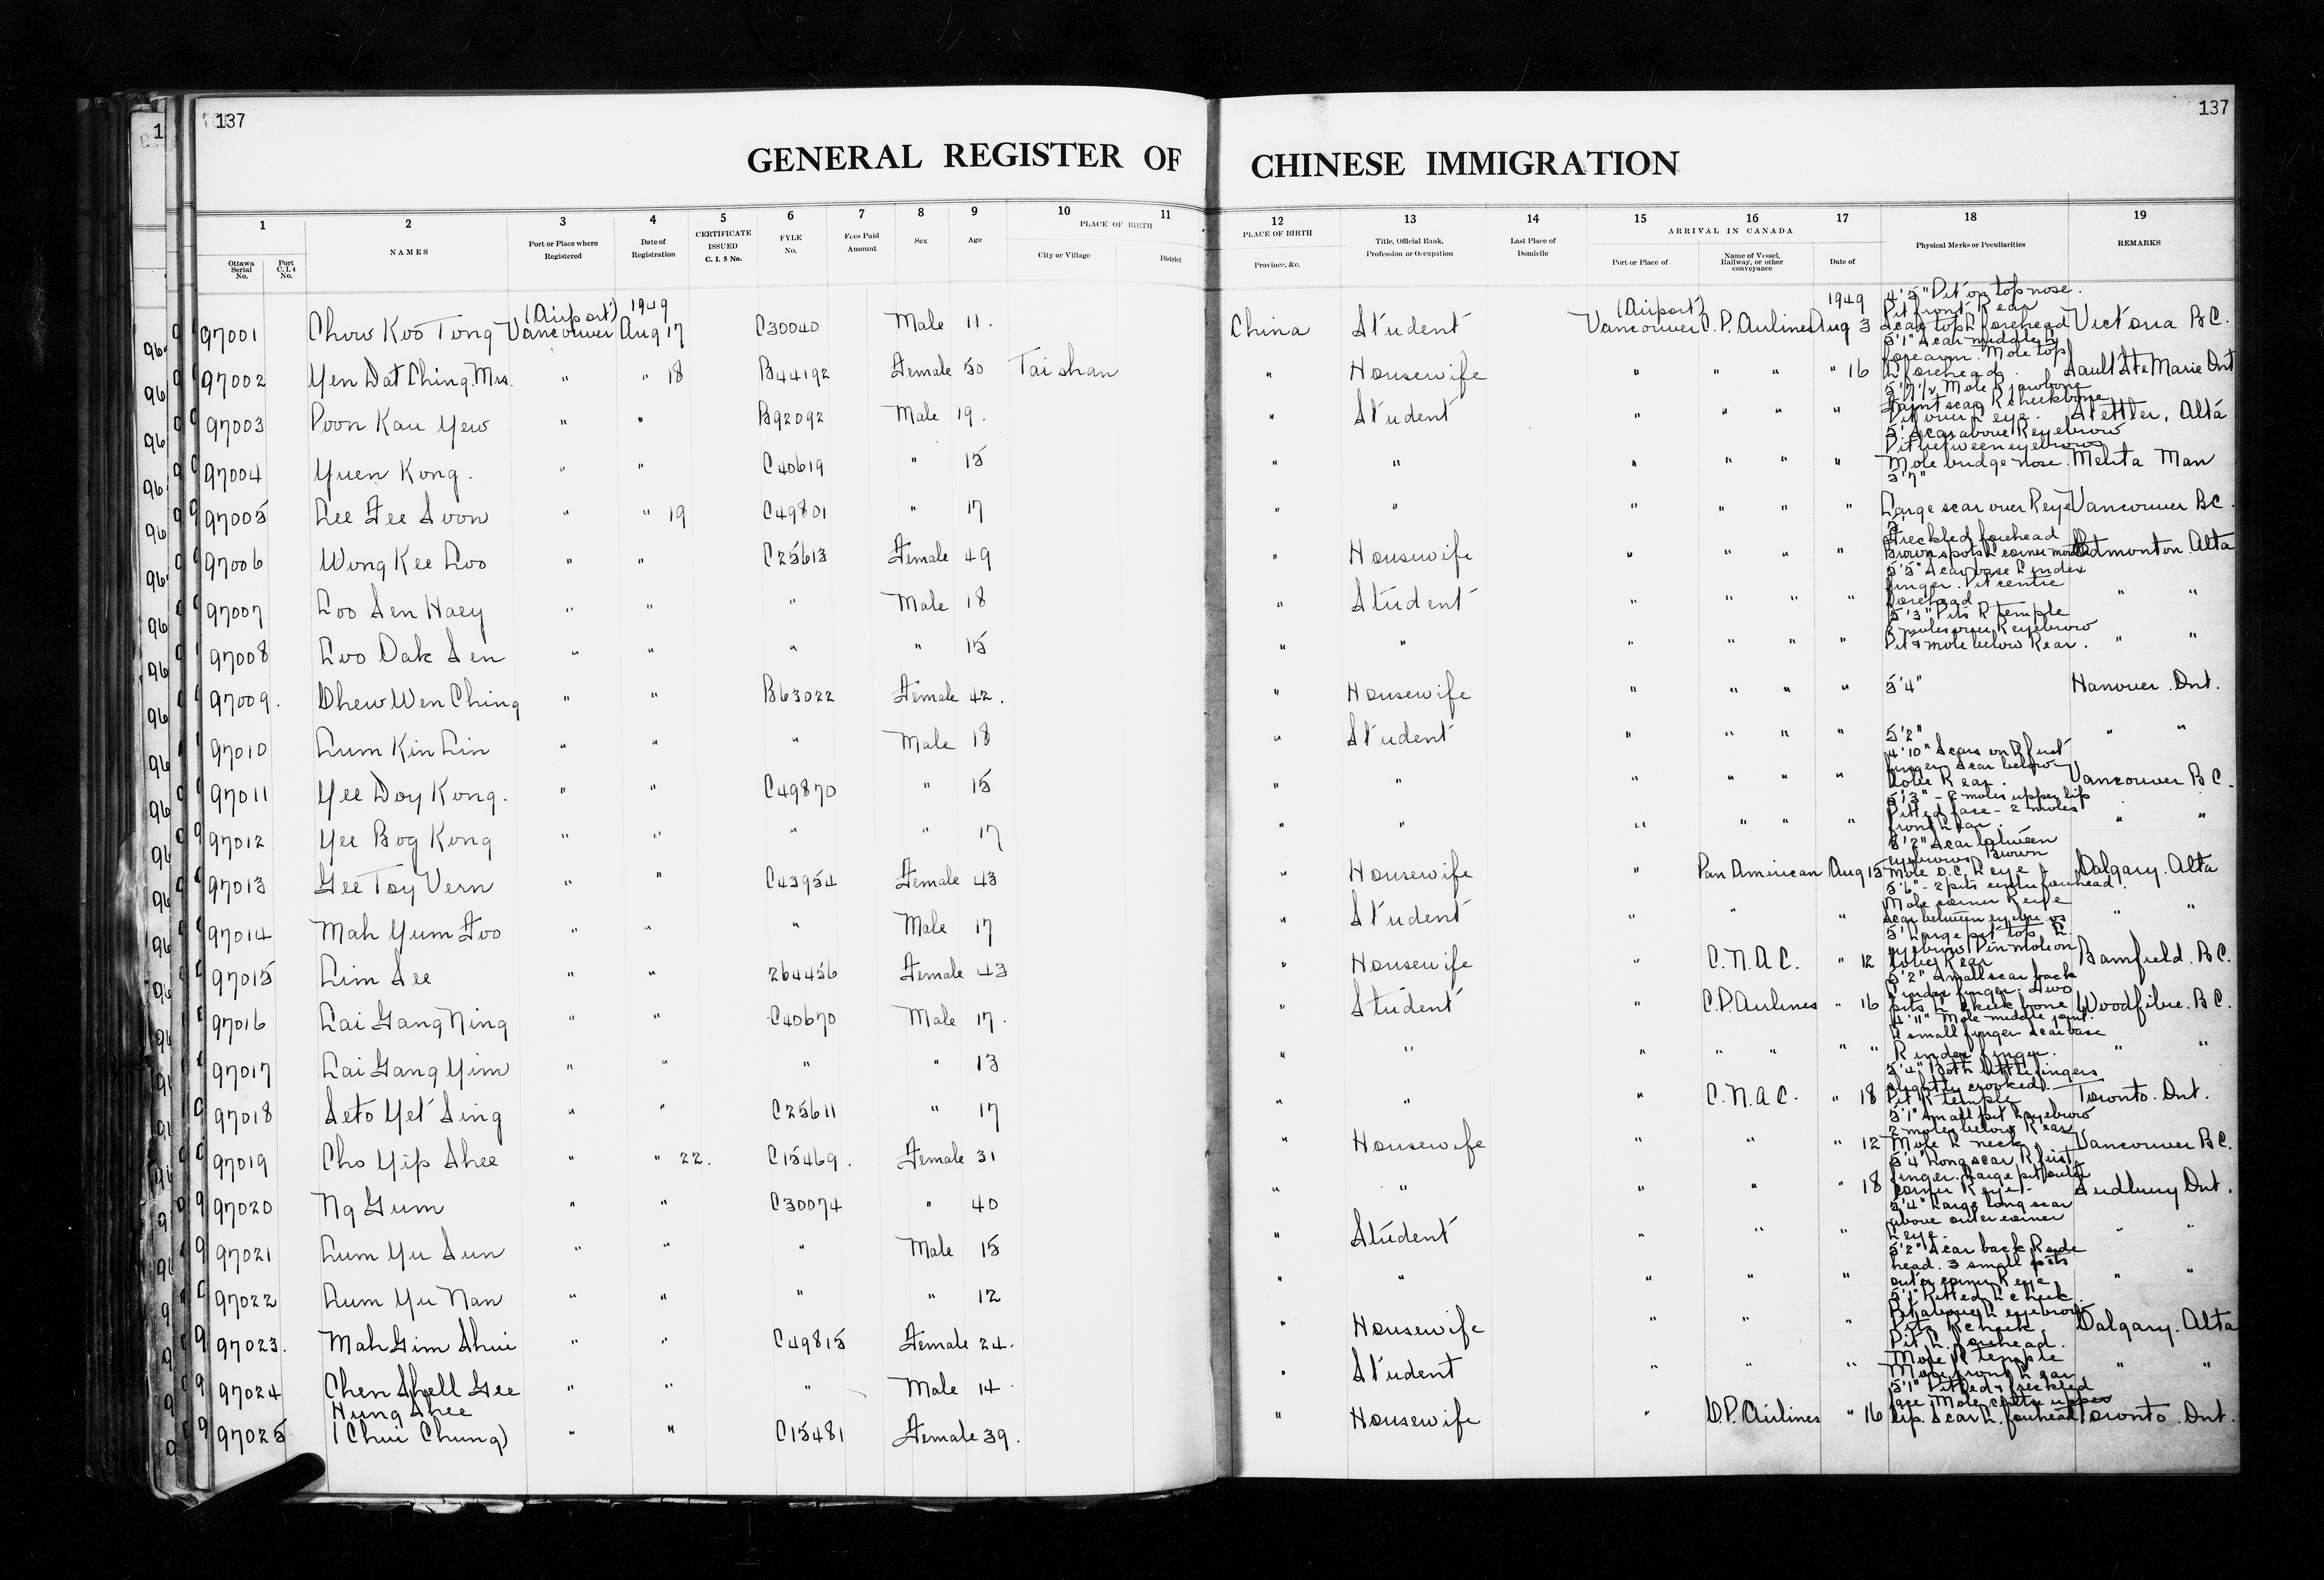 137
137
GENERAL REGISTER OF CHINESE IMMIGRATION
1 2 3 4 5 6 7 8 9 10 11 12 13 14 15 16 17 18 19
PLACE OF BIRTH
ARRIVAL IN CANADA
Ottawa Serial No. Port C.I.4 No. NAMES Port or Place where Registered Date of Registration CERTIFICATE ISSUED C. I. 5 No. FYLE No. Fees Paid Amount Sex Age City or Village District PLACE OF BIRTH Province, &c. Title, Official Rank, Profession or Occupation Last Place of Domicile Port or Place of Name of Vessel, Railway, or other conveyance Date of Physical Marks or Peculiarities REMARKS
97001 Chow Koo Tong (Airport) Vancouver 1949 Aug 17 C30040 Male 11. China Student (Airport) Vancouver C.P. Airlines 1949 Aug 3 4'5" Pit on top nose. Pit front R ear Scar top L forehead Victoria B.C.
97002 Yen Dat Ching. Mrs. " " 18 B44192 Female 50 Taishan " Housewife " " " " 16 5'1" Scar middle L forearm. Mole top L forehead. Sault Ste Marie Ont
97003 Poon Kau Yew " " B92092 Male 19. " Student " " " " 5'7 1/2 Mole R jawbone Faint scar R cheekbone Pit over L eye. Stettler, Alta
97004 Yuen Kong. " " C40619 " 15 " " " " " " 5' Scar above R eyebrow Pit between eyebrows Mole bridge nose. Melita Man
97005 Lee Fee Soon " " 19 C49801 " 17 " " " " " " 5'7" Large scar over R eye Vancouver BC.
97006 Wong Kee Loo " " C25613 Female 49 " Housewife " " " " 5' Freckled forehead Brown spots L corner mouth Edmonton. Alta
97007 Loo Sen Haey " " " Male 18 " Student " " " " 5'5" Scar base L index finger. Pit centre forehead " "
97008 Loo Dak Sen " " " " 15 " " " " " " 5'3" Pits R temple 2 moles over R eyebrow Pit & mole below R ear. " "
97009. Dhew Wen Ching " " B63022 Female 42. " Housewife " " " " 5'4" Hanover. Ont.
97010 Lum Kin Lin " " " Male 18 " Student " " " " 5'2" " "
97011 Yee Doy Kong. " " C49870 " 15 " " " " " " 4'10" Scars on R first finger Scar below lobe R ear. Vancouver B C.
97012 Yee Bog Kong " " " " 17 " " " " " " 5'3" - 2 moles upper lip Pitted face - 2 moles front L ear. " "
97013 Gee Toy Vern " " C43954 Female 43 " Housewife " Pan American Aug 15 5'2" Scar between eyebrows. Brown mole o.c. L eye Calgary. Alta
97014 Mah Yum Foo " " " Male 17 " Student " " " 5'6" - 2 pits centre forehead. Mole corner R eye Scar between eyebrows " "
97015 Lim See " " 264456 Female 43 " Housewife " C.N.A.C. " 12 5' Large pit top L eyebrow. Pin mole on lobe R ear Bamfield. B.C.
97016 Lai Gang Ning " " C40670 Male 17. " Student " C.P. Airlines " 16 5'2" Small scar back L index finger. Two pits L cheek bone Woodfibre. B.C.
97017 Lai Gang Yim " " " " 13 " " " " " " " 4'11" Mole middle joint L small finger Scar base R index finger. " "
97018 Seto Yet Sing " " C25611 " 17 " " " C.N.A.C. " 18 5'4" Both little fingers slightly crooked. Pit R temple Toronto. Ont.
97019 Cho Yip Shee " " 22. C15469. Female 31 " Housewife " " " 12 5'1" Small pit L eyebrow 2 moles below R ear Mole L neck Vancouver B.C.
97020 Ng Gum " " C30074 " 40 " " " " " 18 5'4" Long scar R first finger. Large pit outer corner R eye. Sudbury Ont.
97021 Lum Yu Sun " " " Male 15 " Student " " " 5'4" Large long scar above outer corner L eye. " "
97022 Lum Yu Nan " " " " 12 " " " " " 5'2" Scar back R side head. 3 small pits outer corner R eye " "
97023. Mah Gim Shui " " C49815 Female 24. " Housewife " " " 5'1" Pitted L cheek. Pit above L eyebrow Pits R cheek Calgary. Alta
97024 Chen Shell Gee " " " Male 14. " Student " " " Pit L. forehead. Mole R temple Mole front L ear " "
97025 Hung Shee (Chui Chung) " " C15481 Female 39. " Housewife " C.P. Airlines " 16 5'1" Pitted & freckled face. Mole centre upper lip. Scar L. forehead Toronto. Ont.